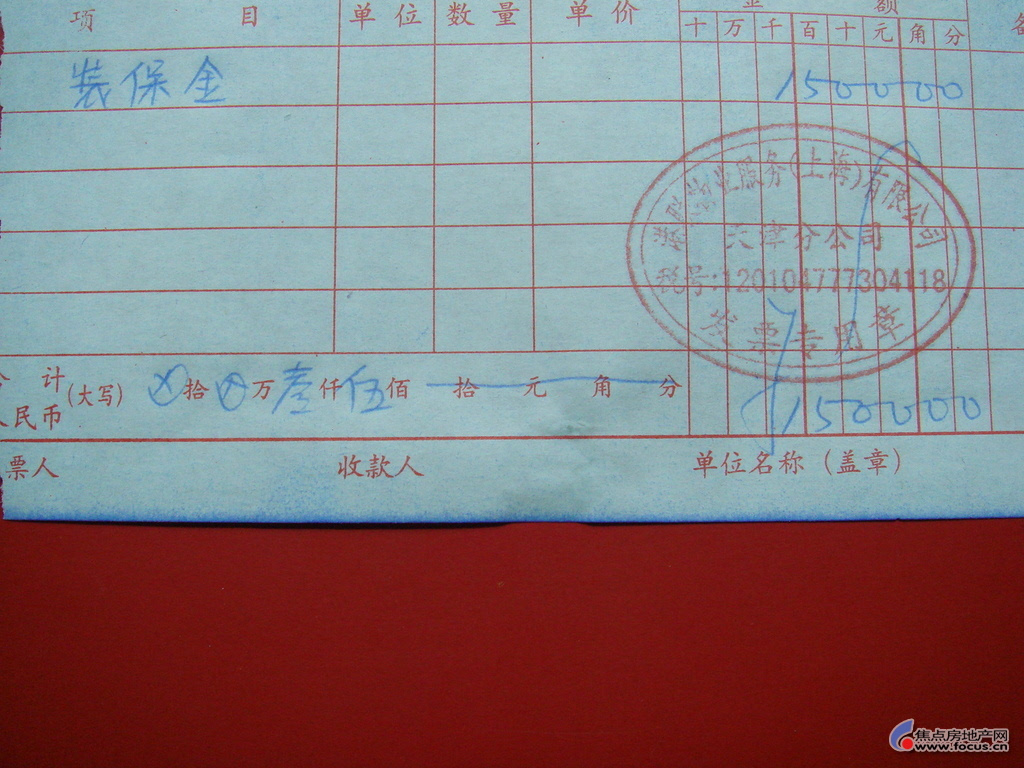 项 目 单位 数量 单价 金 额
十 万 千 百 十 元 角 分
装保金 150000
物业服务(上海)有限公司
天津分公司
税号:120104777304118
发票专用章
计 (大写) 拾 万 壹 仟 伍 佰 拾 元 角 分 150000
民币
票人 收款人 单位名称(盖章)
焦点房地产网
www.focus.cn